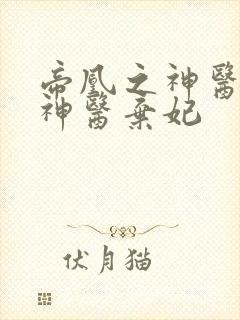 帝凰之神醫
神醫棄妃
伏月猫